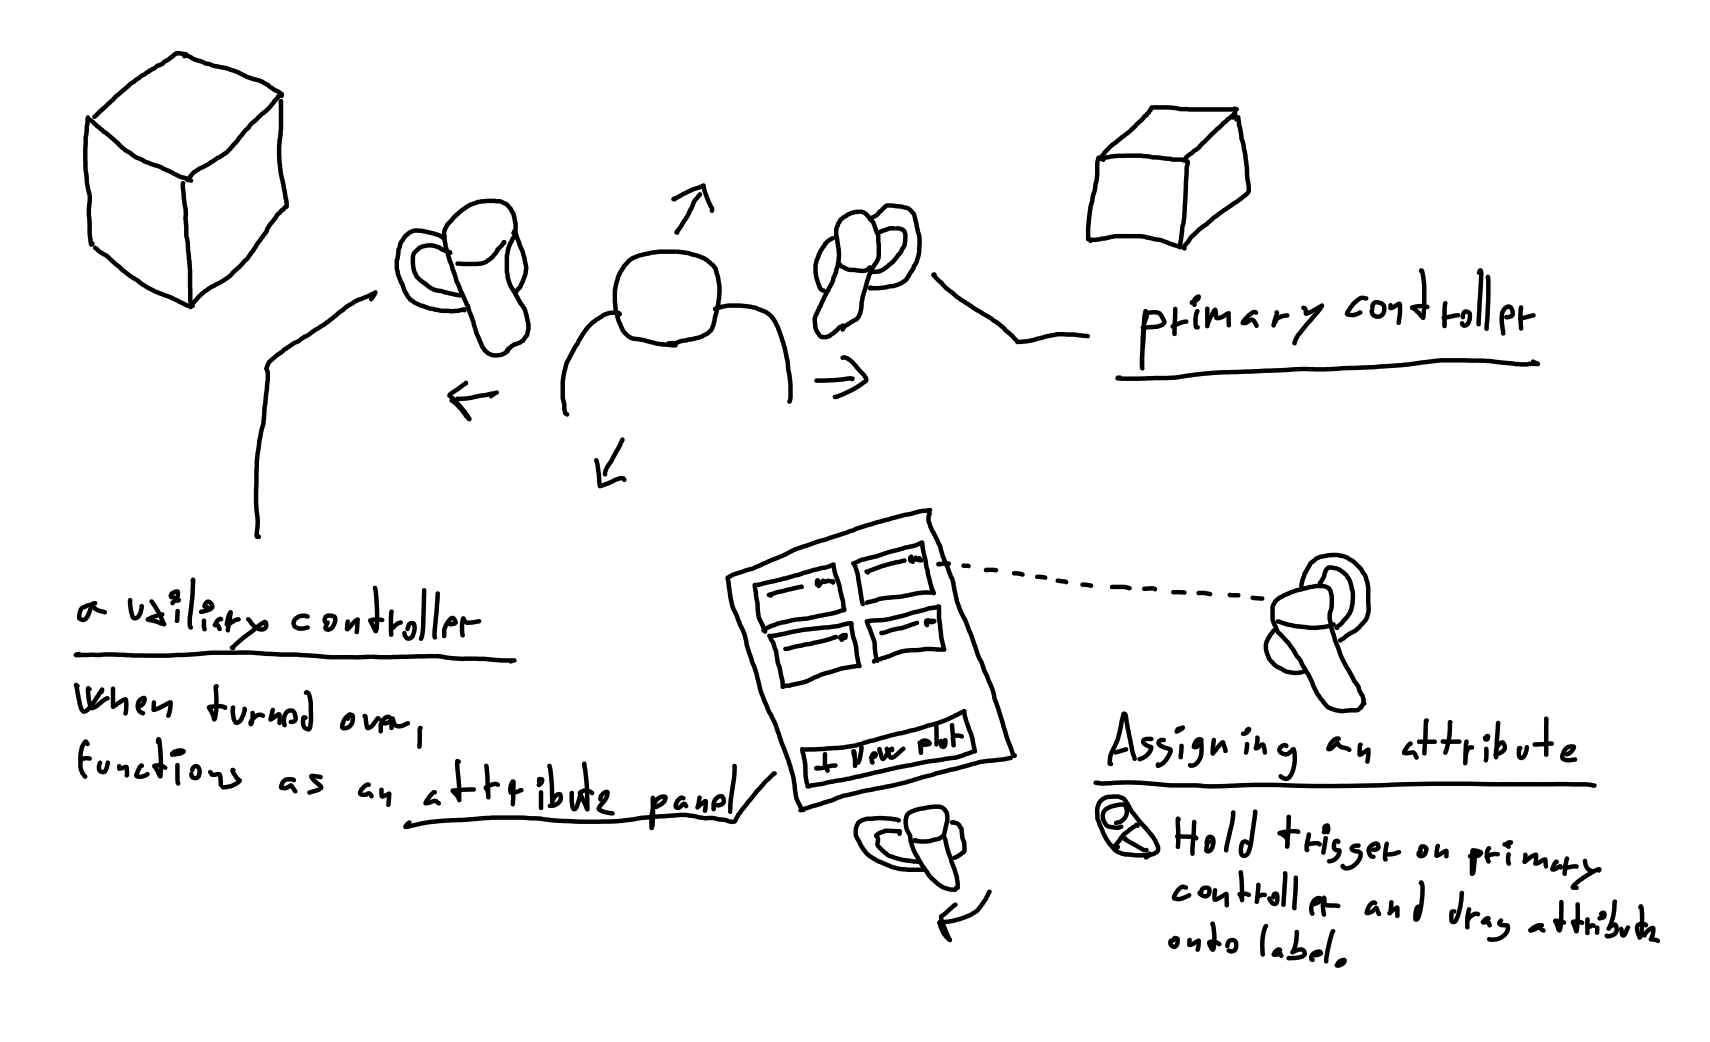 primary controller
auxiliary controller
When turned over,
functions as an attribute panel
+ New plot
Assigning an attribute
Hold trigger on primary
controller and drag attribute
onto label.